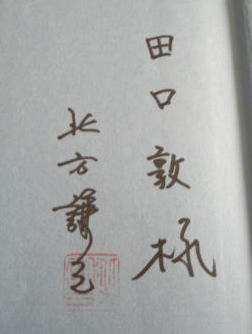 田口敦様
北方謙三